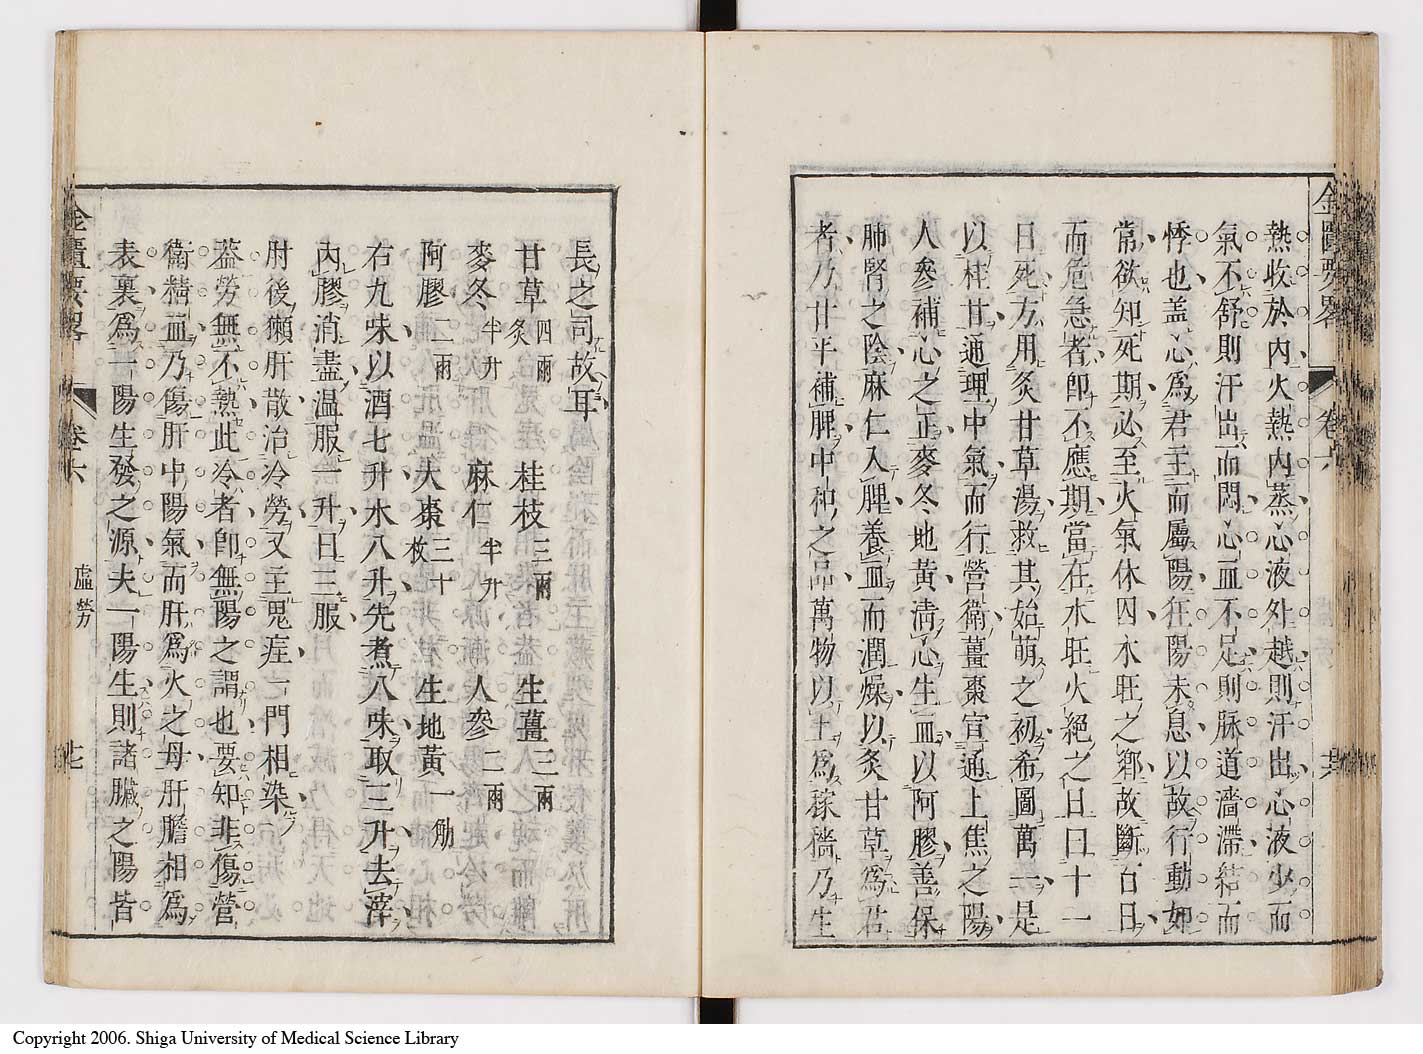 金匱要畧
卷六
熱收於內火熱內蒸心液外越則汗出心液少而
氣不舒則汗出而悶心血不足則脉道濇滯結而
悸也盖心爲君主而屬陽在陽未息以故行動如
常欲知死期必至火氣休囚水旺之鄉故斷百日
而危急者卽不應期當在水旺火絶之日曰十一
日死方用炙甘草湯救其始萌之初希圖萬一是
以桂甘通理中氣而行營衛薑棗宣通上焦之陽
人參補心之正麥冬地黃淸心生血以阿膠善保
肺腎之陰麻仁入脾養血而潤燥以炙甘草爲君
者乃甘平補脾中和之品萬物以土爲稼穡乃生
長之司故耳
甘草四兩炙 桂枝三兩 生薑三兩
麥冬半升 麻仁半升 人參二兩
阿膠二兩 大棗三十枚 生地黃一觔
右九味以酒七升水八升先煮八味取三升去滓
內膠消盡温服一升日三服
肘後獺肝散治冷勞又主鬼疰一門相染
葢勞無不熱此冷者卽無陽之謂也要知非傷營
衛精血乃傷肝中陽氣而肝爲火之母肝膽相爲
表裏爲一陽生發之源夫一陽生則諸臟之陽皆
金匱要畧
卷六
虛勞
Copyright 2006. Shiga University of Medical Science Library